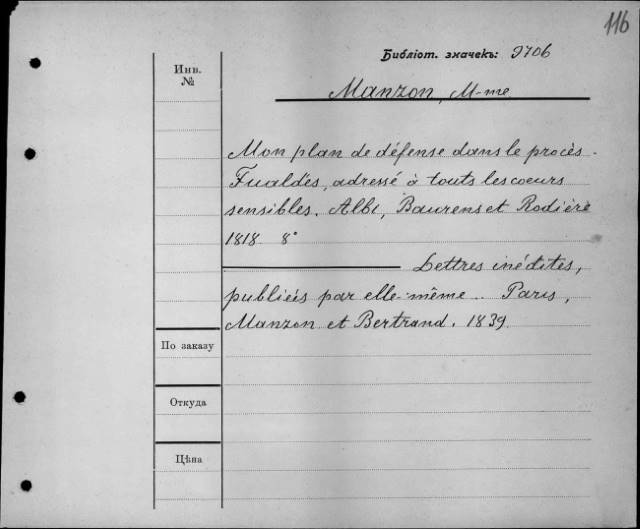 116
Библіот. значекъ: 9706
Инв.
№
Manzon, M-me
Mon plan de défense dans le procès
Fualdès, adressé à touts les coeurs
sensibles. Albi, Baurens et Rodière
1818 8°
Lettres inédites,
publiées par elle-même. Paris,
Manzon et Bertrand. 1839
По заказу
Откуда
Цѣна